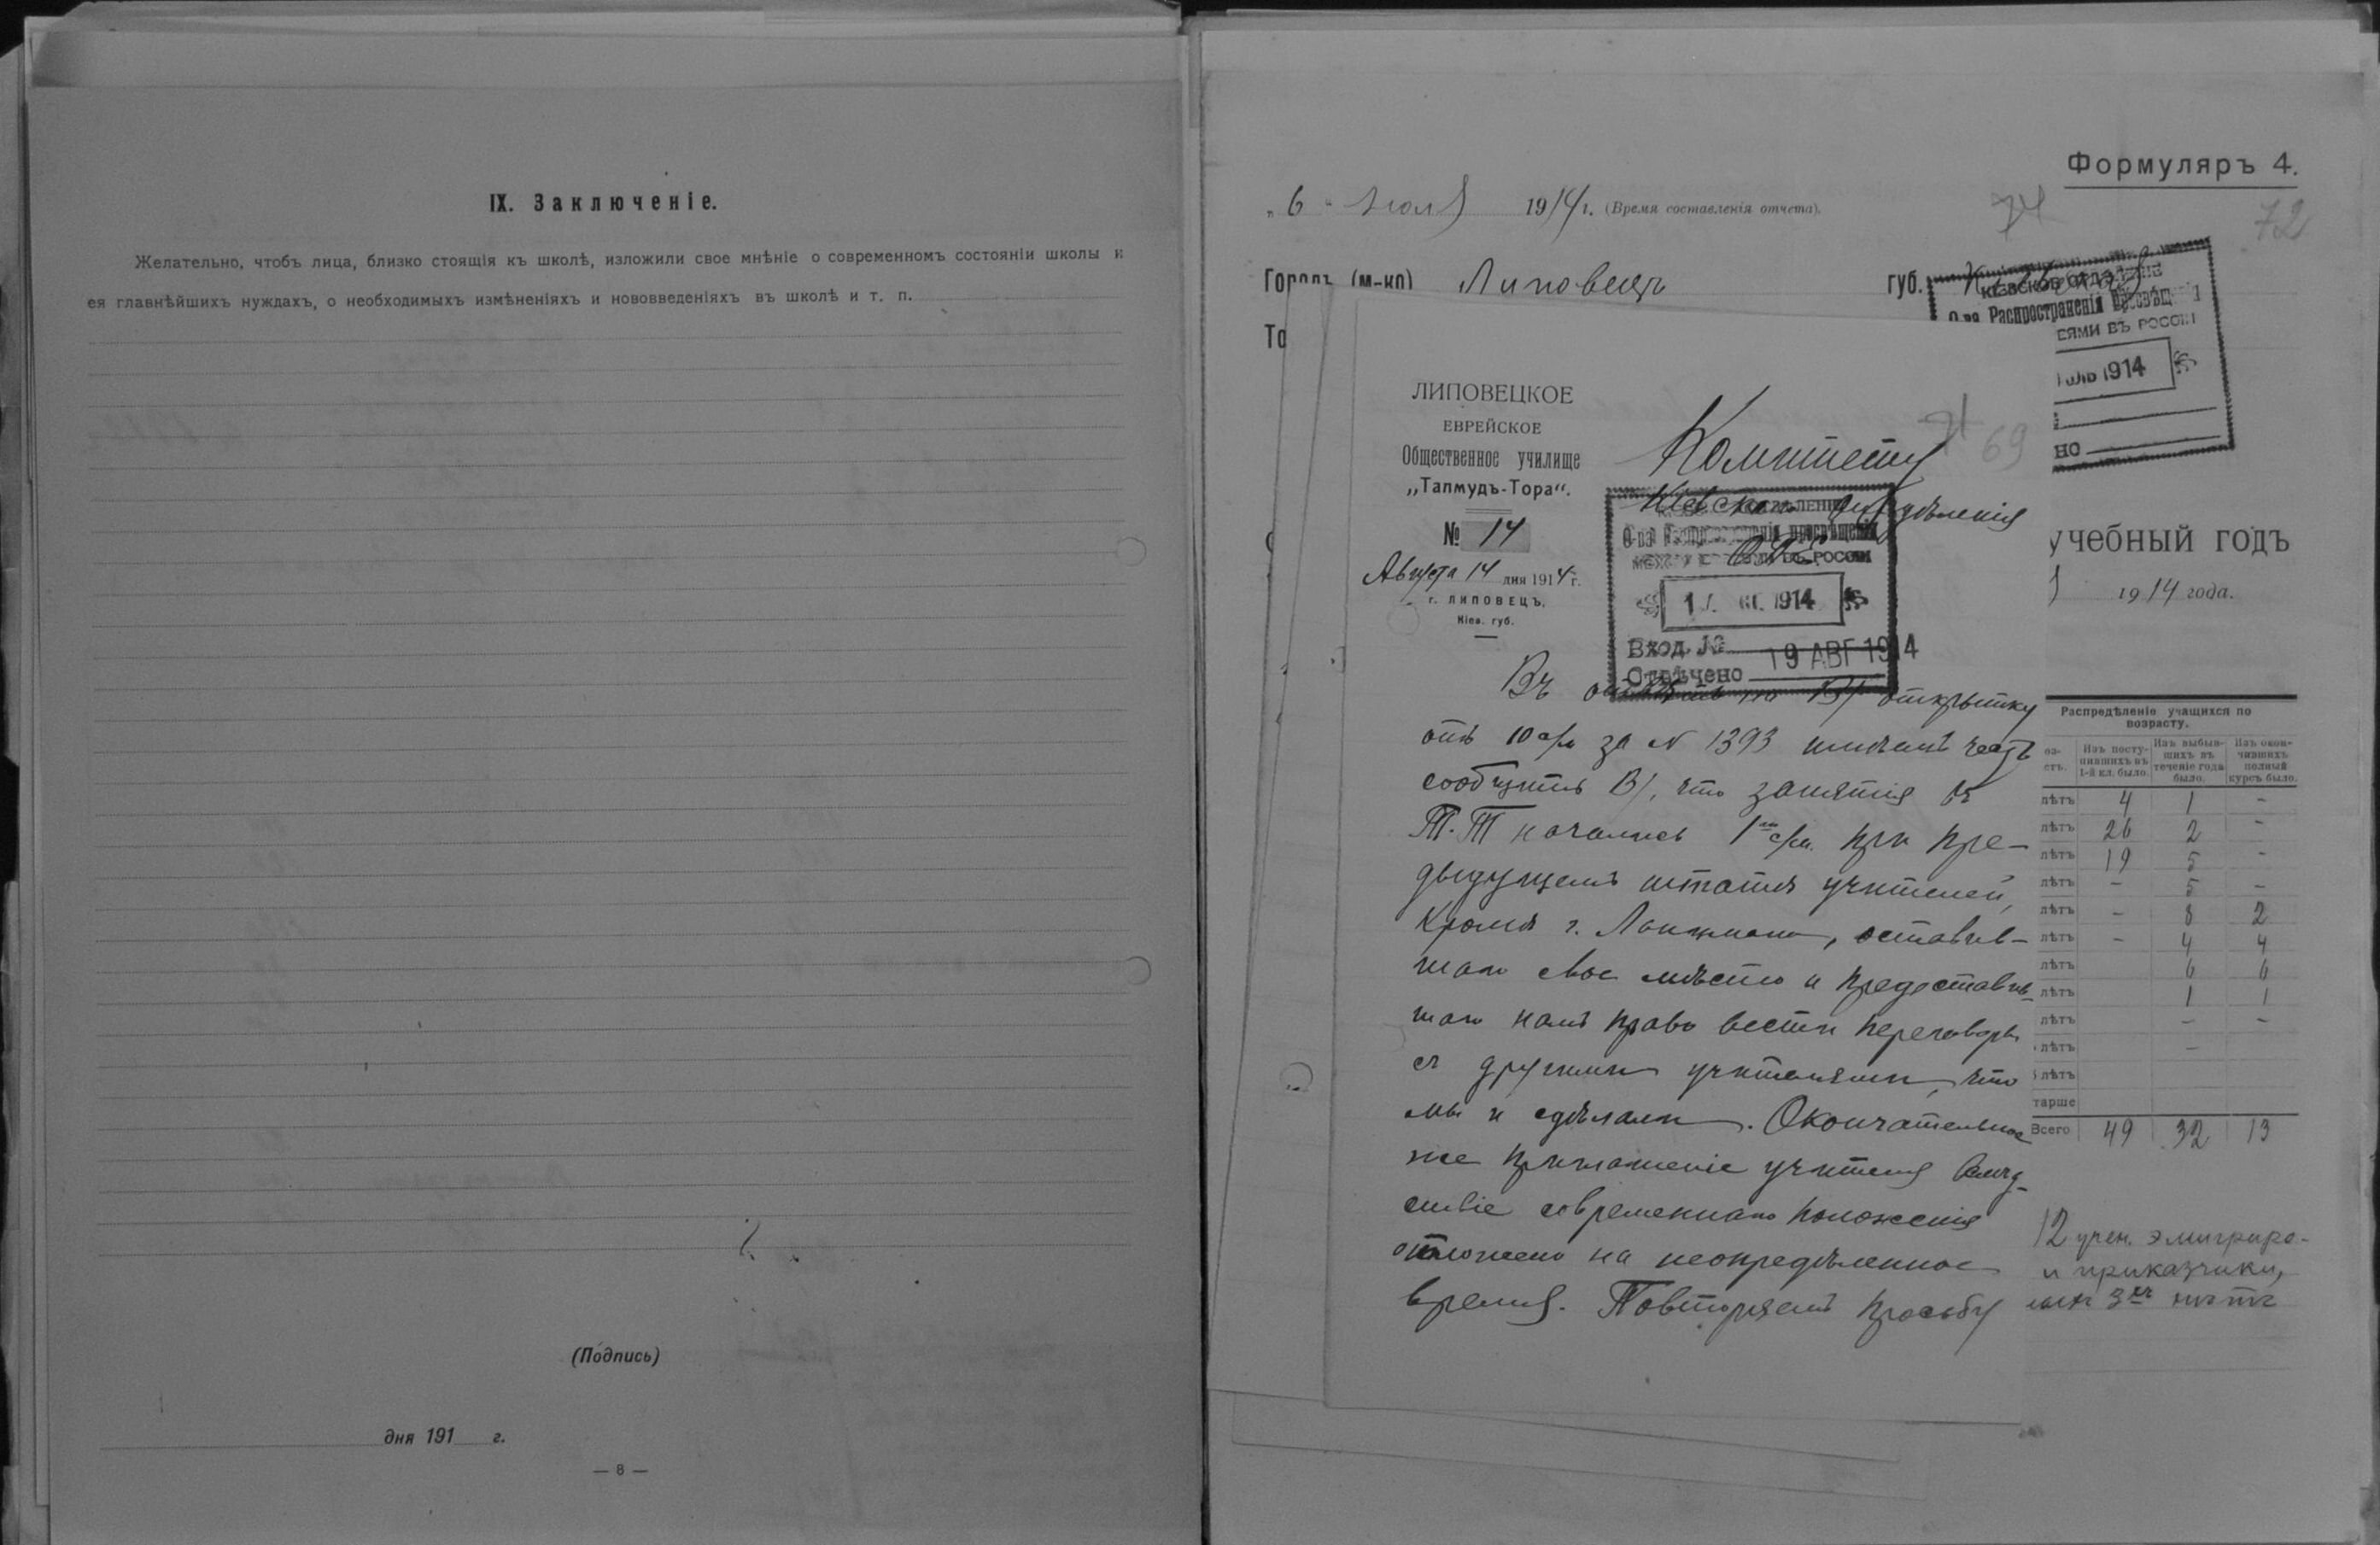 IX. Заключеніе.
Желательно, чтобъ лица, близко стоящія къ школѣ, изложили свое мнѣніе о современномъ состояніи школы и
ея главнѣйшихъ нуждахъ, о необходимыхъ измѣненіяхъ и нововведеніяхъ въ школѣ и т. п.
(Подпись)
дня 191 г.
— 8 —
Формуляръ 4.
„ 6 " Іюля 1914 г. (Время составленія отчета).
72
Городъ (м-ко) Липовецъ губ. Кіевская
КІЕВСКОЕ ОТДѢЛЕНІЕ
О-ва Распространенія Просвѣщенія
ЕЯМИ ВЪ РОССІИ
1914
но
То
ЛИПОВЕЦКОЕ
ЕВРЕЙСКОЕ
Общественное училище
„Талмудъ-Тора“.
№ 14
Августа 14 дня 1914 г.
г. ЛИПОВЕЦЪ,
Кіев. губ.
69
Комитету
Кіевскаго Отдѣленія
О.П.Е.
О-ва Распространенія просвѣщенія
ВЪ РОССІИ
1914
Вход. №
Отвѣчено 19 АВГ 1914
учебный годъ
1914 года.
Въ отвѣтъ на В/ открытку
отъ 10 с/м за N 1393 имѣемъ честь
сообщить В/, что занятія въ
Т.Т начались 1го с/м. при пре-
дыдущемъ штатѣ учителей,
кромѣ г. , оставив-
шаго свое мѣсто и предоставив-
шаго намъ право вести переговоры
съ другими учителями, что
мы и сдѣлали. Окончательное
же приглашеніе учителя вслѣд-
ствіе современнаго положенія
отложено на неопредѣленное
время. Повторяемъ просьбу
Распредѣленіе учащихся по
возрасту.
Изъ посту-
пившихъ въ
1-й кл. было.
Изъ выбыв-
шихъ въ
теченіе года
было.
Изъ окон-
чившихъ
полный
курсъ было.
лѣтъ 4 1 -
лѣтъ 26 2 -
лѣтъ 19 5 -
лѣтъ - 5 -
лѣтъ - 8 2
лѣтъ - 4 4
лѣтъ 6 6
лѣтъ 1 1
лѣтъ - -
лѣтъ -
лѣтъ
тарше
Всего 49 32 13
12 учен. эмигриро-
и приказчики,